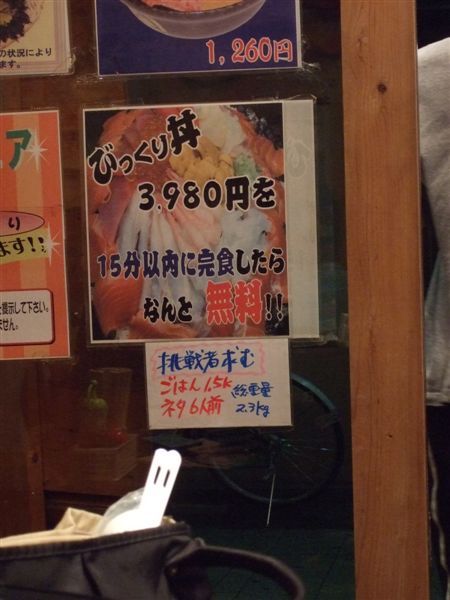 の状況により
ます。
1,260円
ア
り
ます!!
を提示して下さい。
ません。
びっくり丼
3,980円を
15分以内に完食したら
なんと 無料!!
挑戦者求む
ごはん1.5K
ネタ6人前
総重量
2.3kg